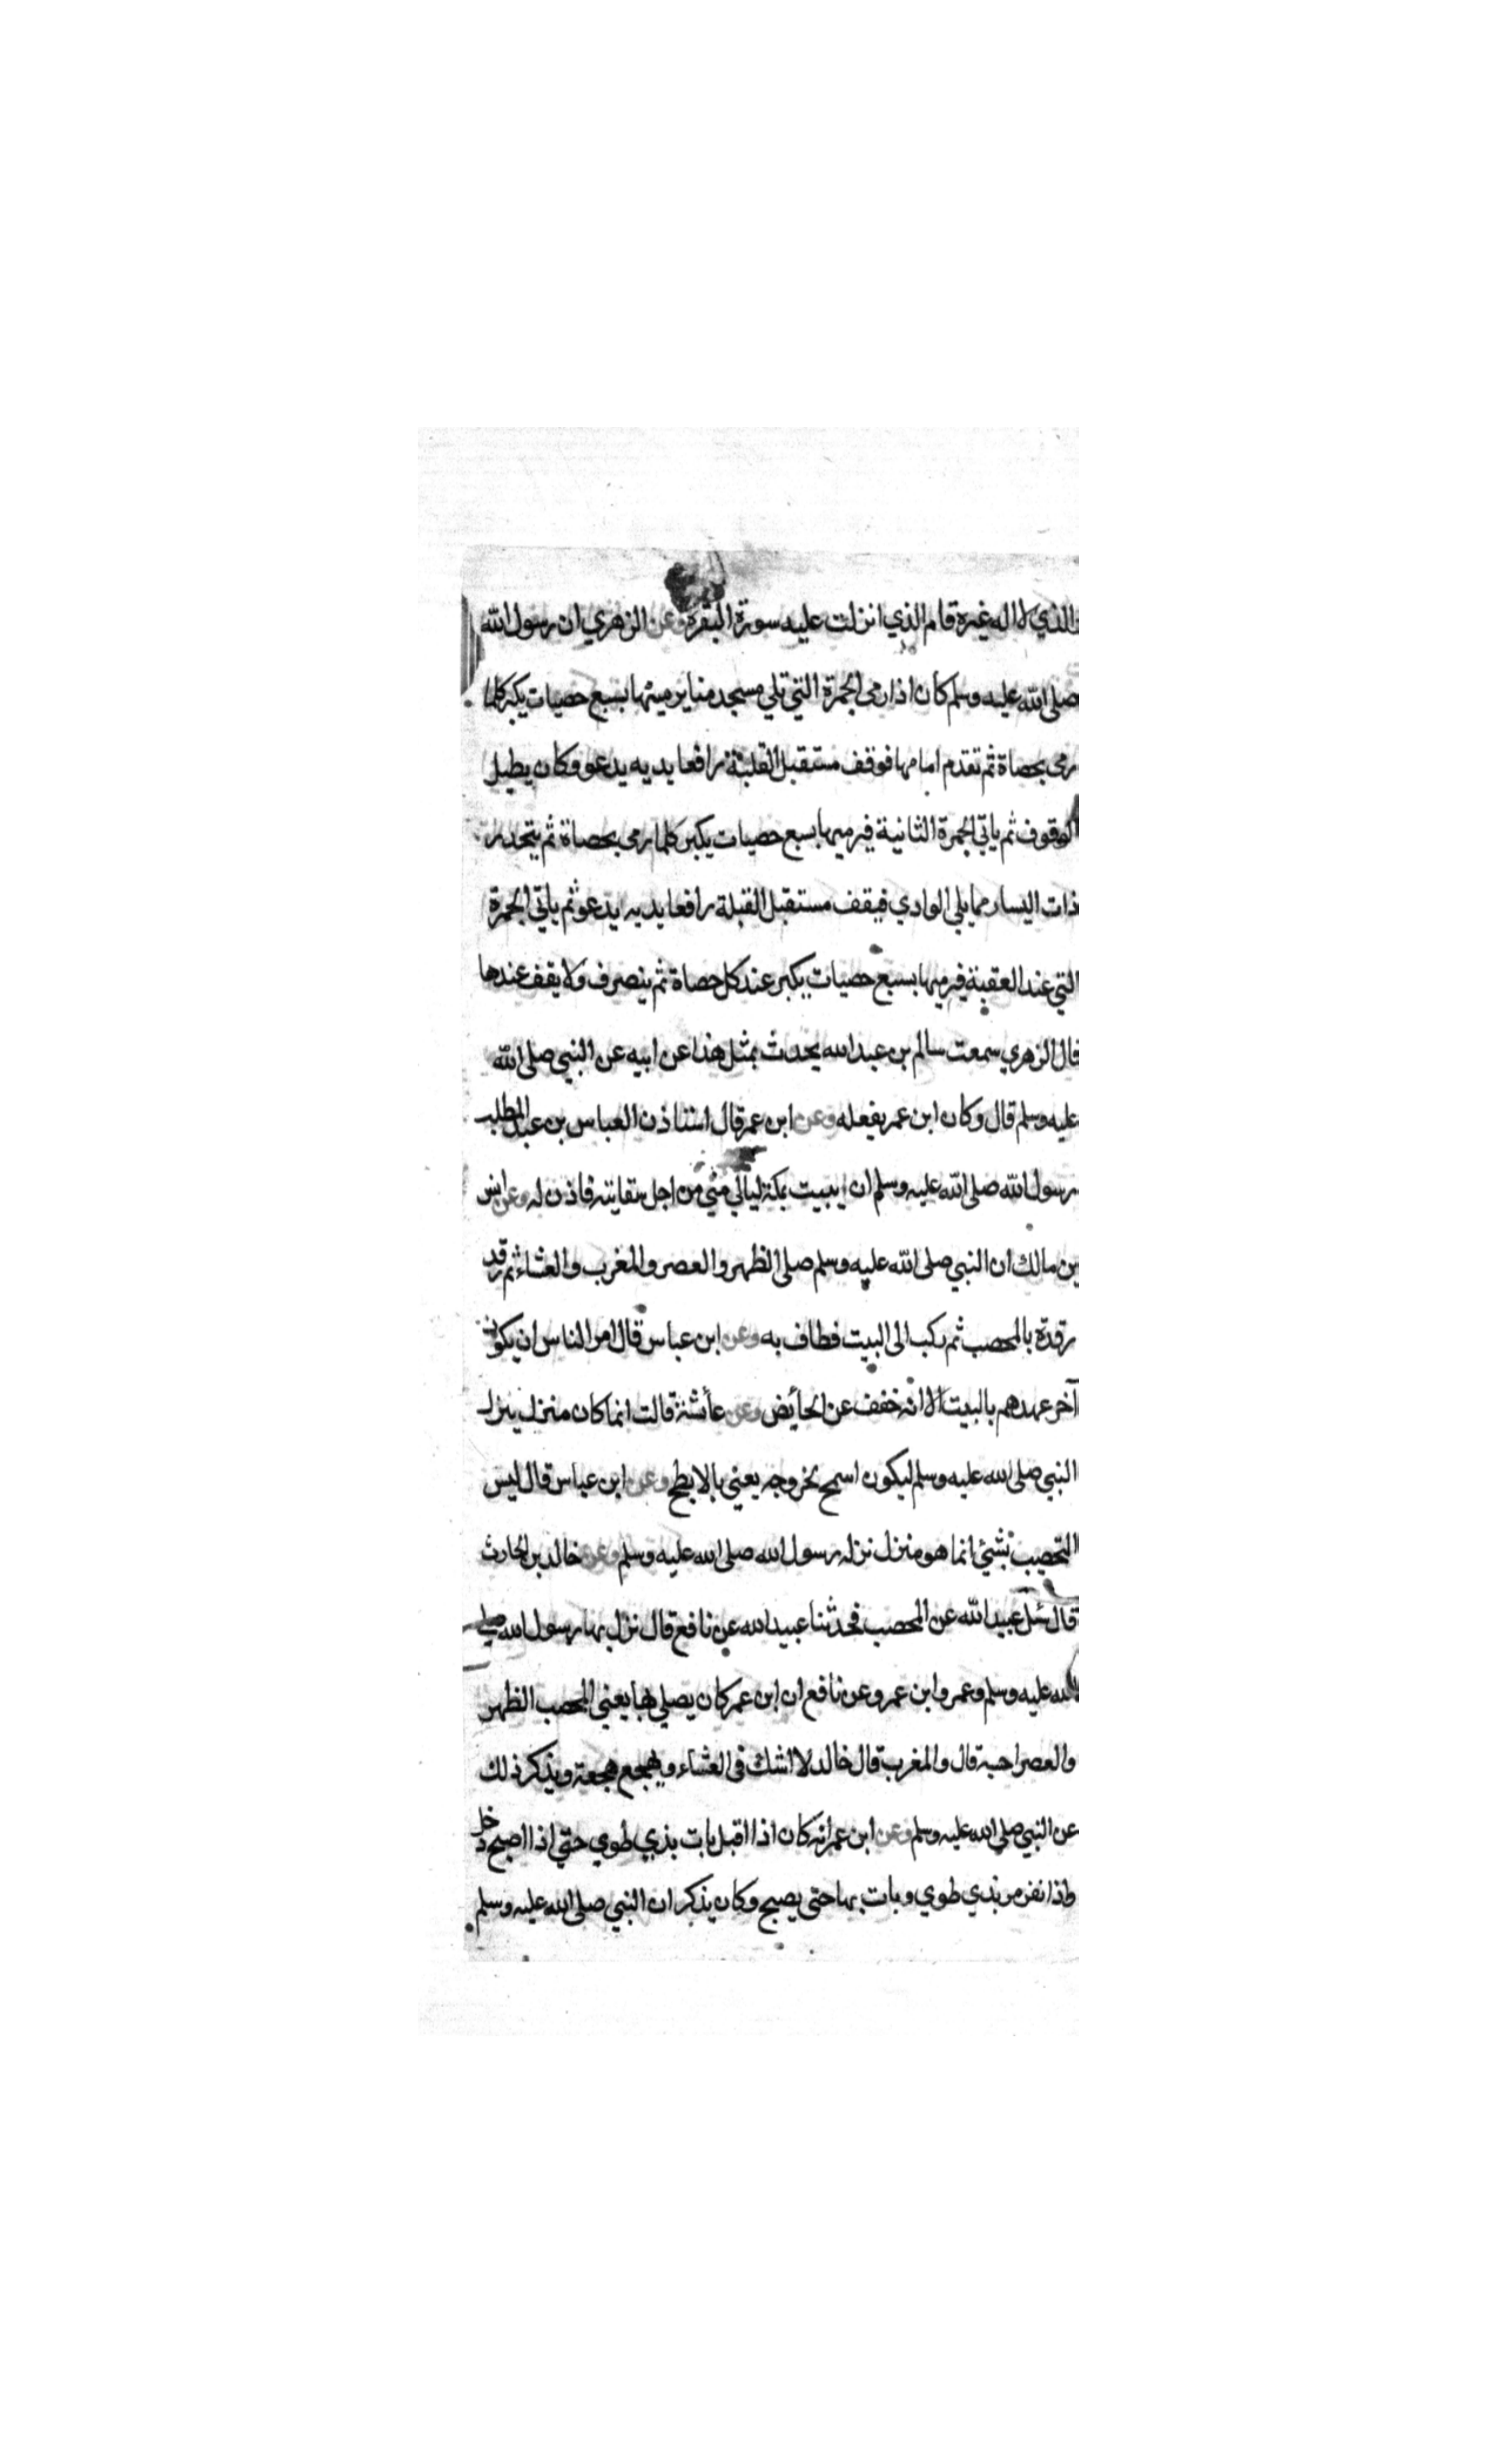 والذي لا اله غيره قام الذي انزلت عليه سورة البقرة وعن الزهري ان رسول الله
صلى الله عليه وسلم كان اذا رمى الجمرة التي تلي مسجد منا يرميها بسبع حصيات يكبر كلما
رمى بحصاة ثم تقدم امامها فوقف مستقبل القبلة رافعا يديه يدعو وكان يطيل
الوقوف ثم ياتي الجمرة الثانية فيرميها بسبع حصيات يكبر كلما رمى بحصاة ثم يتحدر
ذات اليسار مما يلي الوادي فيقف مستقبل القبلة رافعا يديه يدعو ثم ياتي الجمرة
التي عند العقبة فيرميها بسبع حصيات يكبر عند كل حصاة ثم ينصرف ولا يقف عندها
قال الزهري سمعت سالم بن عبد الله يحدث بمثل هذا عن ابيه عن النبي صلى الله
عليه وسلم قال وكان ابن عمر يفعله وعن ابن عمر قال استاذن العباس بن عبد المطلب
رسول الله صلى الله عليه وسلم ان يبيت بمكة ليالي مني من اجل سقايته فاذن له وعن انس
بن مالك ان النبي صلى الله عليه وسلم صلى الظهر والعصر والمغرب والعشاء ثم رقد
رقدة بالمحصب ثم ركب الى البيت فطاف به وعن ابن عباس قال امر الناس ان يكون
آخر عهدهم بالبيت الا انه خفف عن الحائض وعن عائشة قالت انما كان منزل ينزل
النبي صلى الله عليه وسلم ليكون اسمح لخروجه يعني بالابطح وعن ابن عباس قال ليس
التحصيب بشئ انما هو منزل نزله رسول الله صلى الله عليه وسلم وعن خالد بن الحارث
قال سئل عبيد الله عن المحصب فحدثنا عبيد الله عن نافع قال نزل بها رسول الله صلى
الله عليه وسلم وعمر وابن عمر وعن نافع ان ابن عمر كان يصلي بها يعني المحصب الظهر
والعصر احسبه قال والمغرب قال خالد لا اشك في العشاء ويهجع هجعة ويذكر ذلك
عن النبي صلى الله عليه وسلم وعن ابن عمر انه كان اذا اقبل بات بذي طوي حتي اذا اصبح دخل
واذا نفر مر بذي طوي وبات بها حتى يصبح وكان يذكر ان النبي صلى الله عليه وسلم